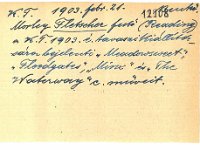 K.T. 1903. febr. 21.
12108
Morley Fletscher festő (Reading)
a K.T. 1903. i. tavaszi kiállítá-
sára bejelenti „Meadowsweet",
„Floodgates", „Mine" is „The
Waterway" c. műveit.